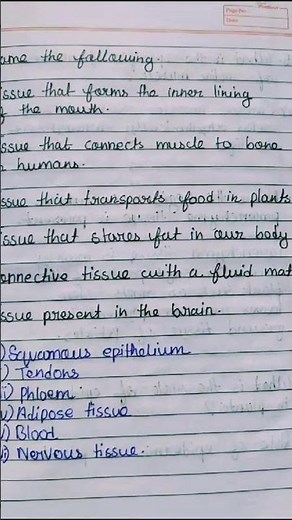 Page No.
Date
ame the following.
issue that forms the inner lining
f the mouth.
ssue that connects muscle to bone
n humans.
ssue that transports food in plants
issue that stores fat in our body
onnective tissue with a fluid mat
ssue present in the brain.
) Squamous epithelium
i) Tendons
ii) Phloem
v) Adipose tissue
) Blood
i) Nervous tissue.